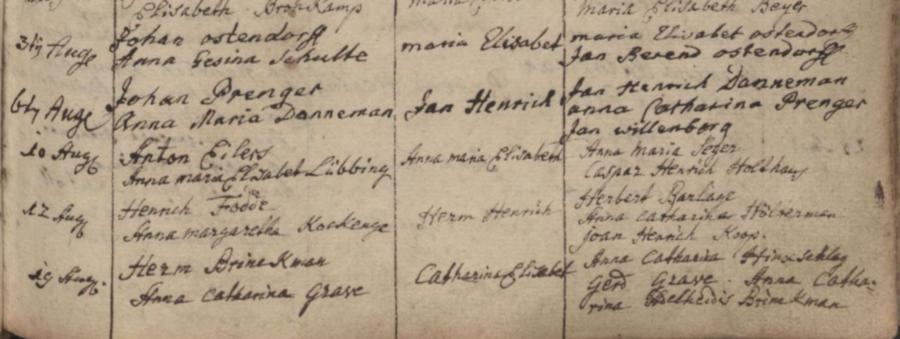 Elisabeth BrohKamp
Maria Elisabeth Beyer
3tij Aug Johan ostendorff maria Elisabet maria Elisabet ostendorff
Anna Gesina Schulte Jan Berend ostendorff
6tj Aug Johan Prenger Jan Henrich Jan Henrich Danneman
Anna Maria Danneman anna Catharina Prenger
Jan willenborg
10 Aug Anton Eilers Anna maria Elisabeth Anna maria
Anna maria Elisabet Lübbing Caspar Henrich Holthaus
12 Aug Henrich Herm Henrich Herbert Barlage
Anna margaretha Kockenge Anna catharina Hölterman
Joan Henrich Koop.
19 Aug. Herm BrineKman Catharina Elisabet Anna Catharina
Anna catharina Grave Gerd Grave. Anna Catha-
rina Adelheidis BrineKman